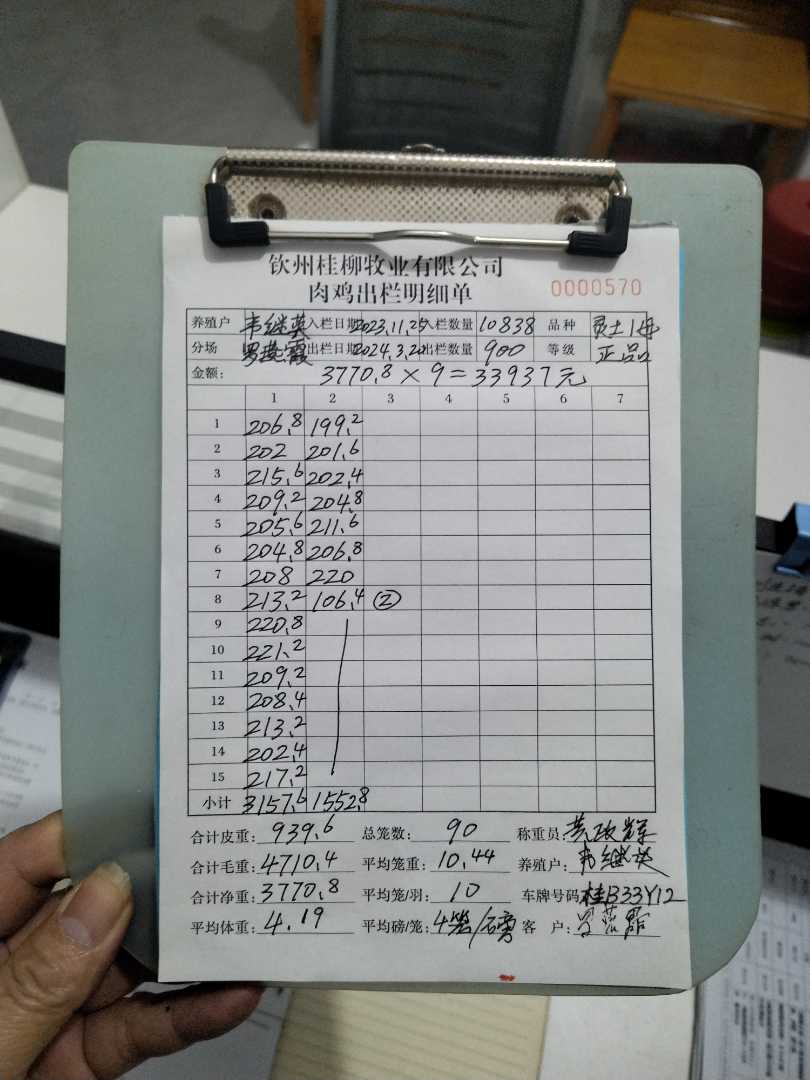 钦州桂柳牧业有限公司
肉鸡出栏明细单 0000570
养殖户 韦继英 入栏日期 2023.11.25 入栏数量 10838 品种 灵土1母
分场 罗燕霞 出栏日期 2024.3.20 出栏数量 900 等级 正品
金额: 3770.8×9=33937元
1 2 3 4 5 6 7
1 206.8 199.2
2 202 201.6
3 215.6 202.4
4 209.2 204.8
5 205.6 211.6
6 204.8 206.8
7 208 220
8 213.2 106.4 ②
9 220.8
10 221.2
11 209.2
12 208.4
13 213.2
14 202.4
15 217.2
小计 3157.6 1552.8
合计皮重: 939.6 总笼数: 90 称重员: 黄政辉
合计毛重: 4710.4 平均笼重: 10.44 养殖户: 韦继英
合计净重: 3770.8 平均笼/羽: 10 车牌号码 桂B33Y12
平均体重: 4.19 平均磅/笼: 4笼/磅 客户: